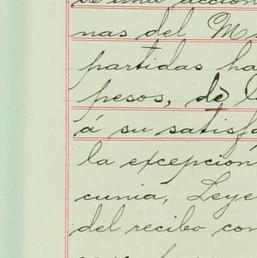 de una accion
nas del M
partidas ha
pesos, de l
á su satisf
la excepcion
cunia, Leye
del recibo con